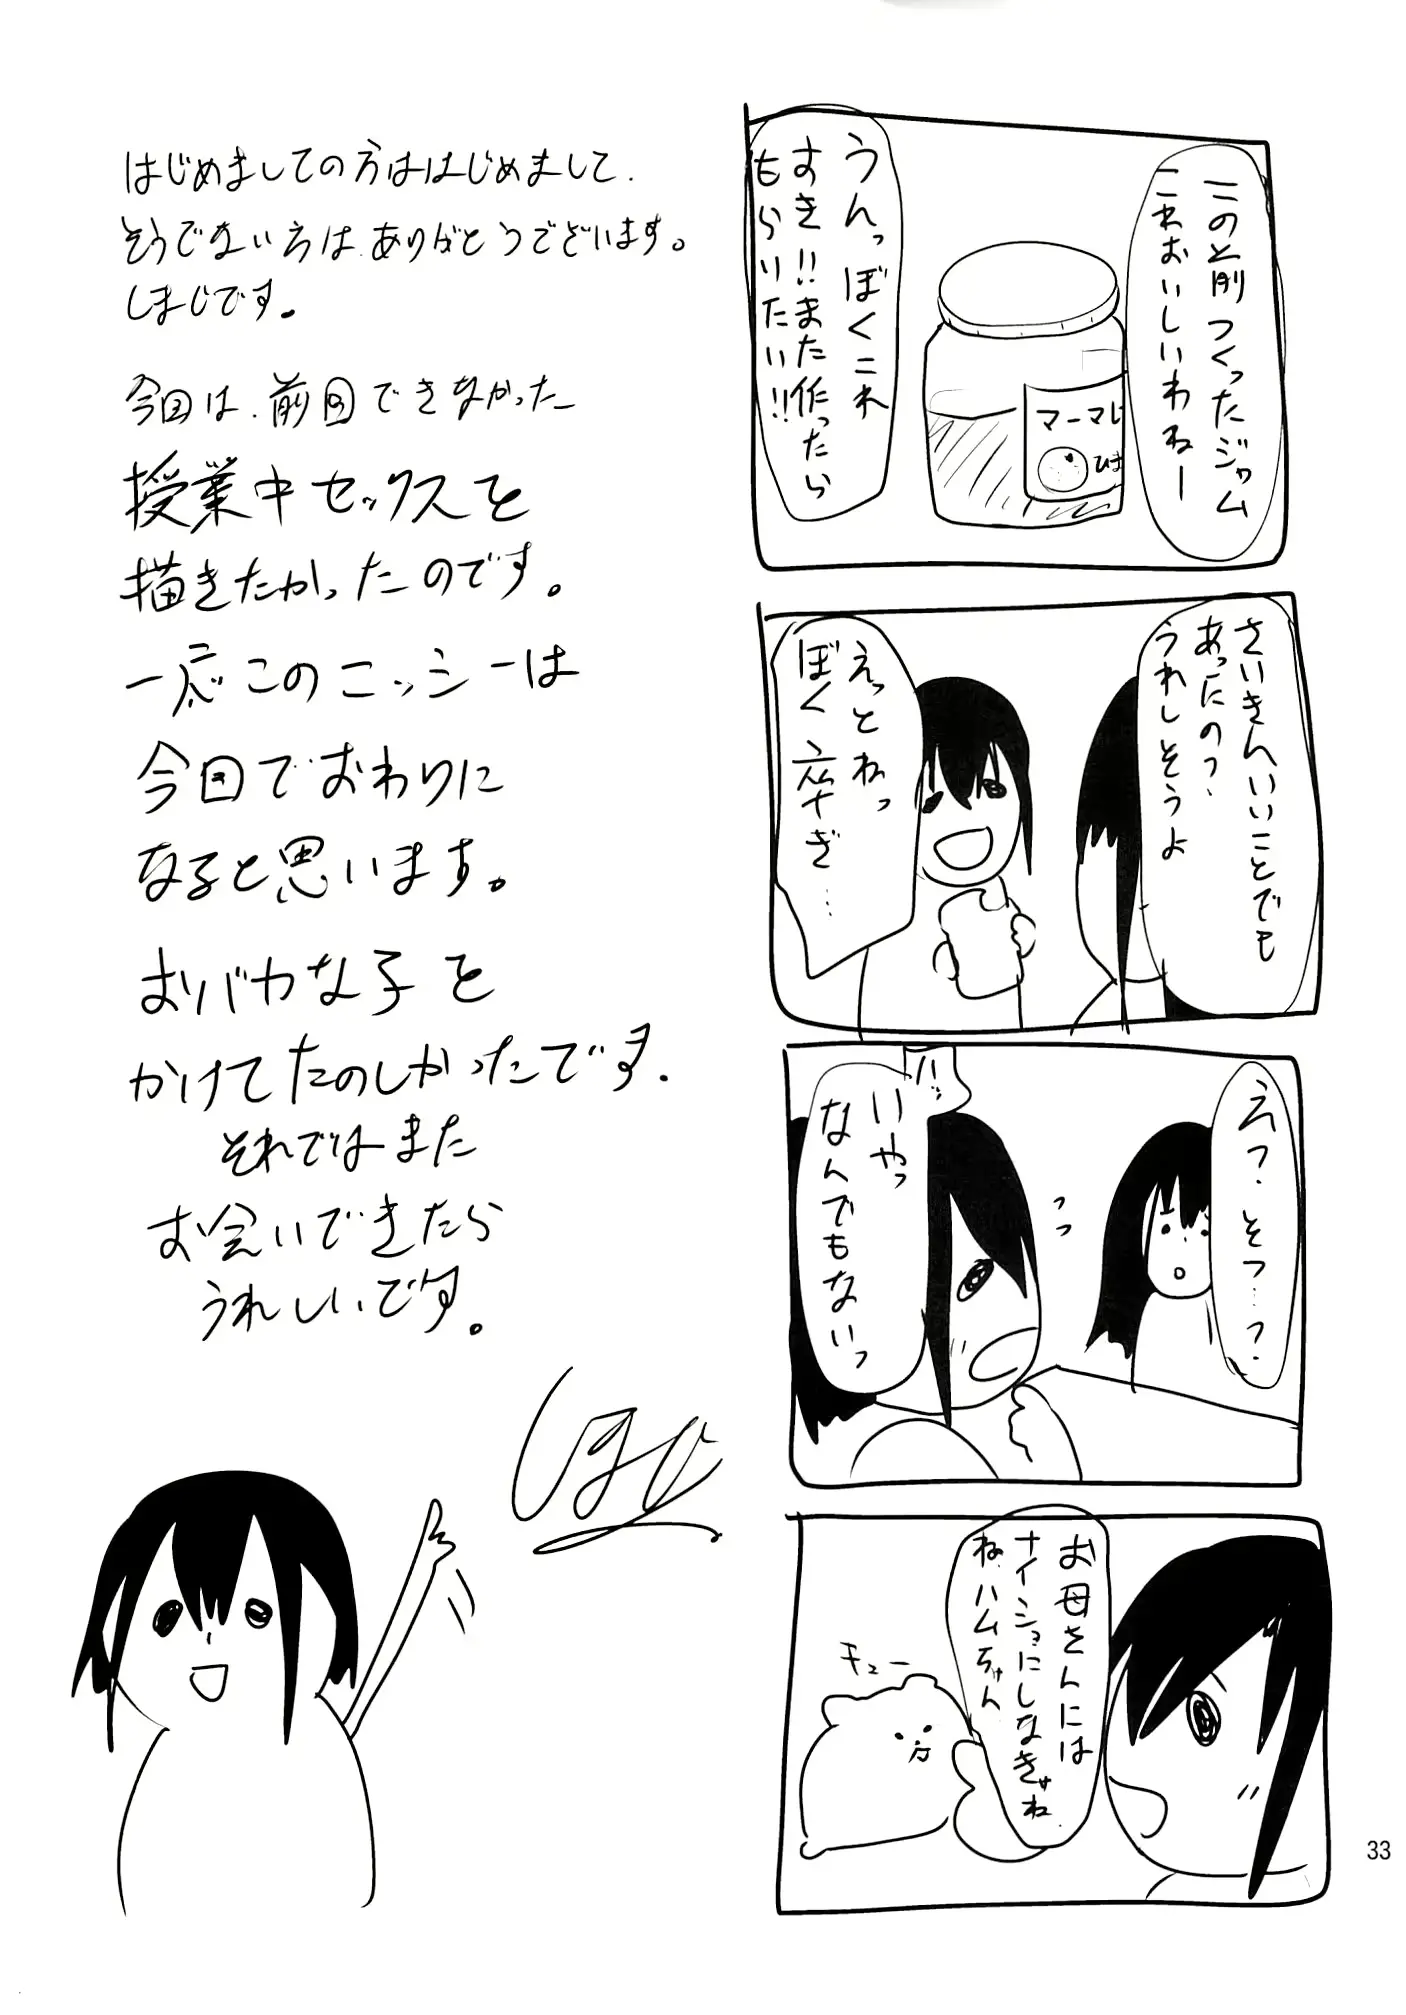 はじめましての方ははじめまして、
そうでない方は、ありがとうございます。
しまじです。
今回は、前回できなかった
授業中セックスを
描きたかったのです。
一応このニッシーは
今回でおわりに
なると思います。
おバカな子を
かけてたのしかったです。
それではまた
お会いできたら
うれしいです。
しまじ
この前つくったジャム
これおいしいわねー
マーマレ
ひま
うんっぼくこれ
すき!!また作ったら
もらいたい!!
さいきんいいことでも
あったの?
うれしそうよ
えっとねっ
ぼく卒ぎ…
え?そつ…?
バッ
いやっ
なんでもないっ
っっ
お母さんには
ナイショにしなきゃね
ね、ハムちゃん
キュー
33